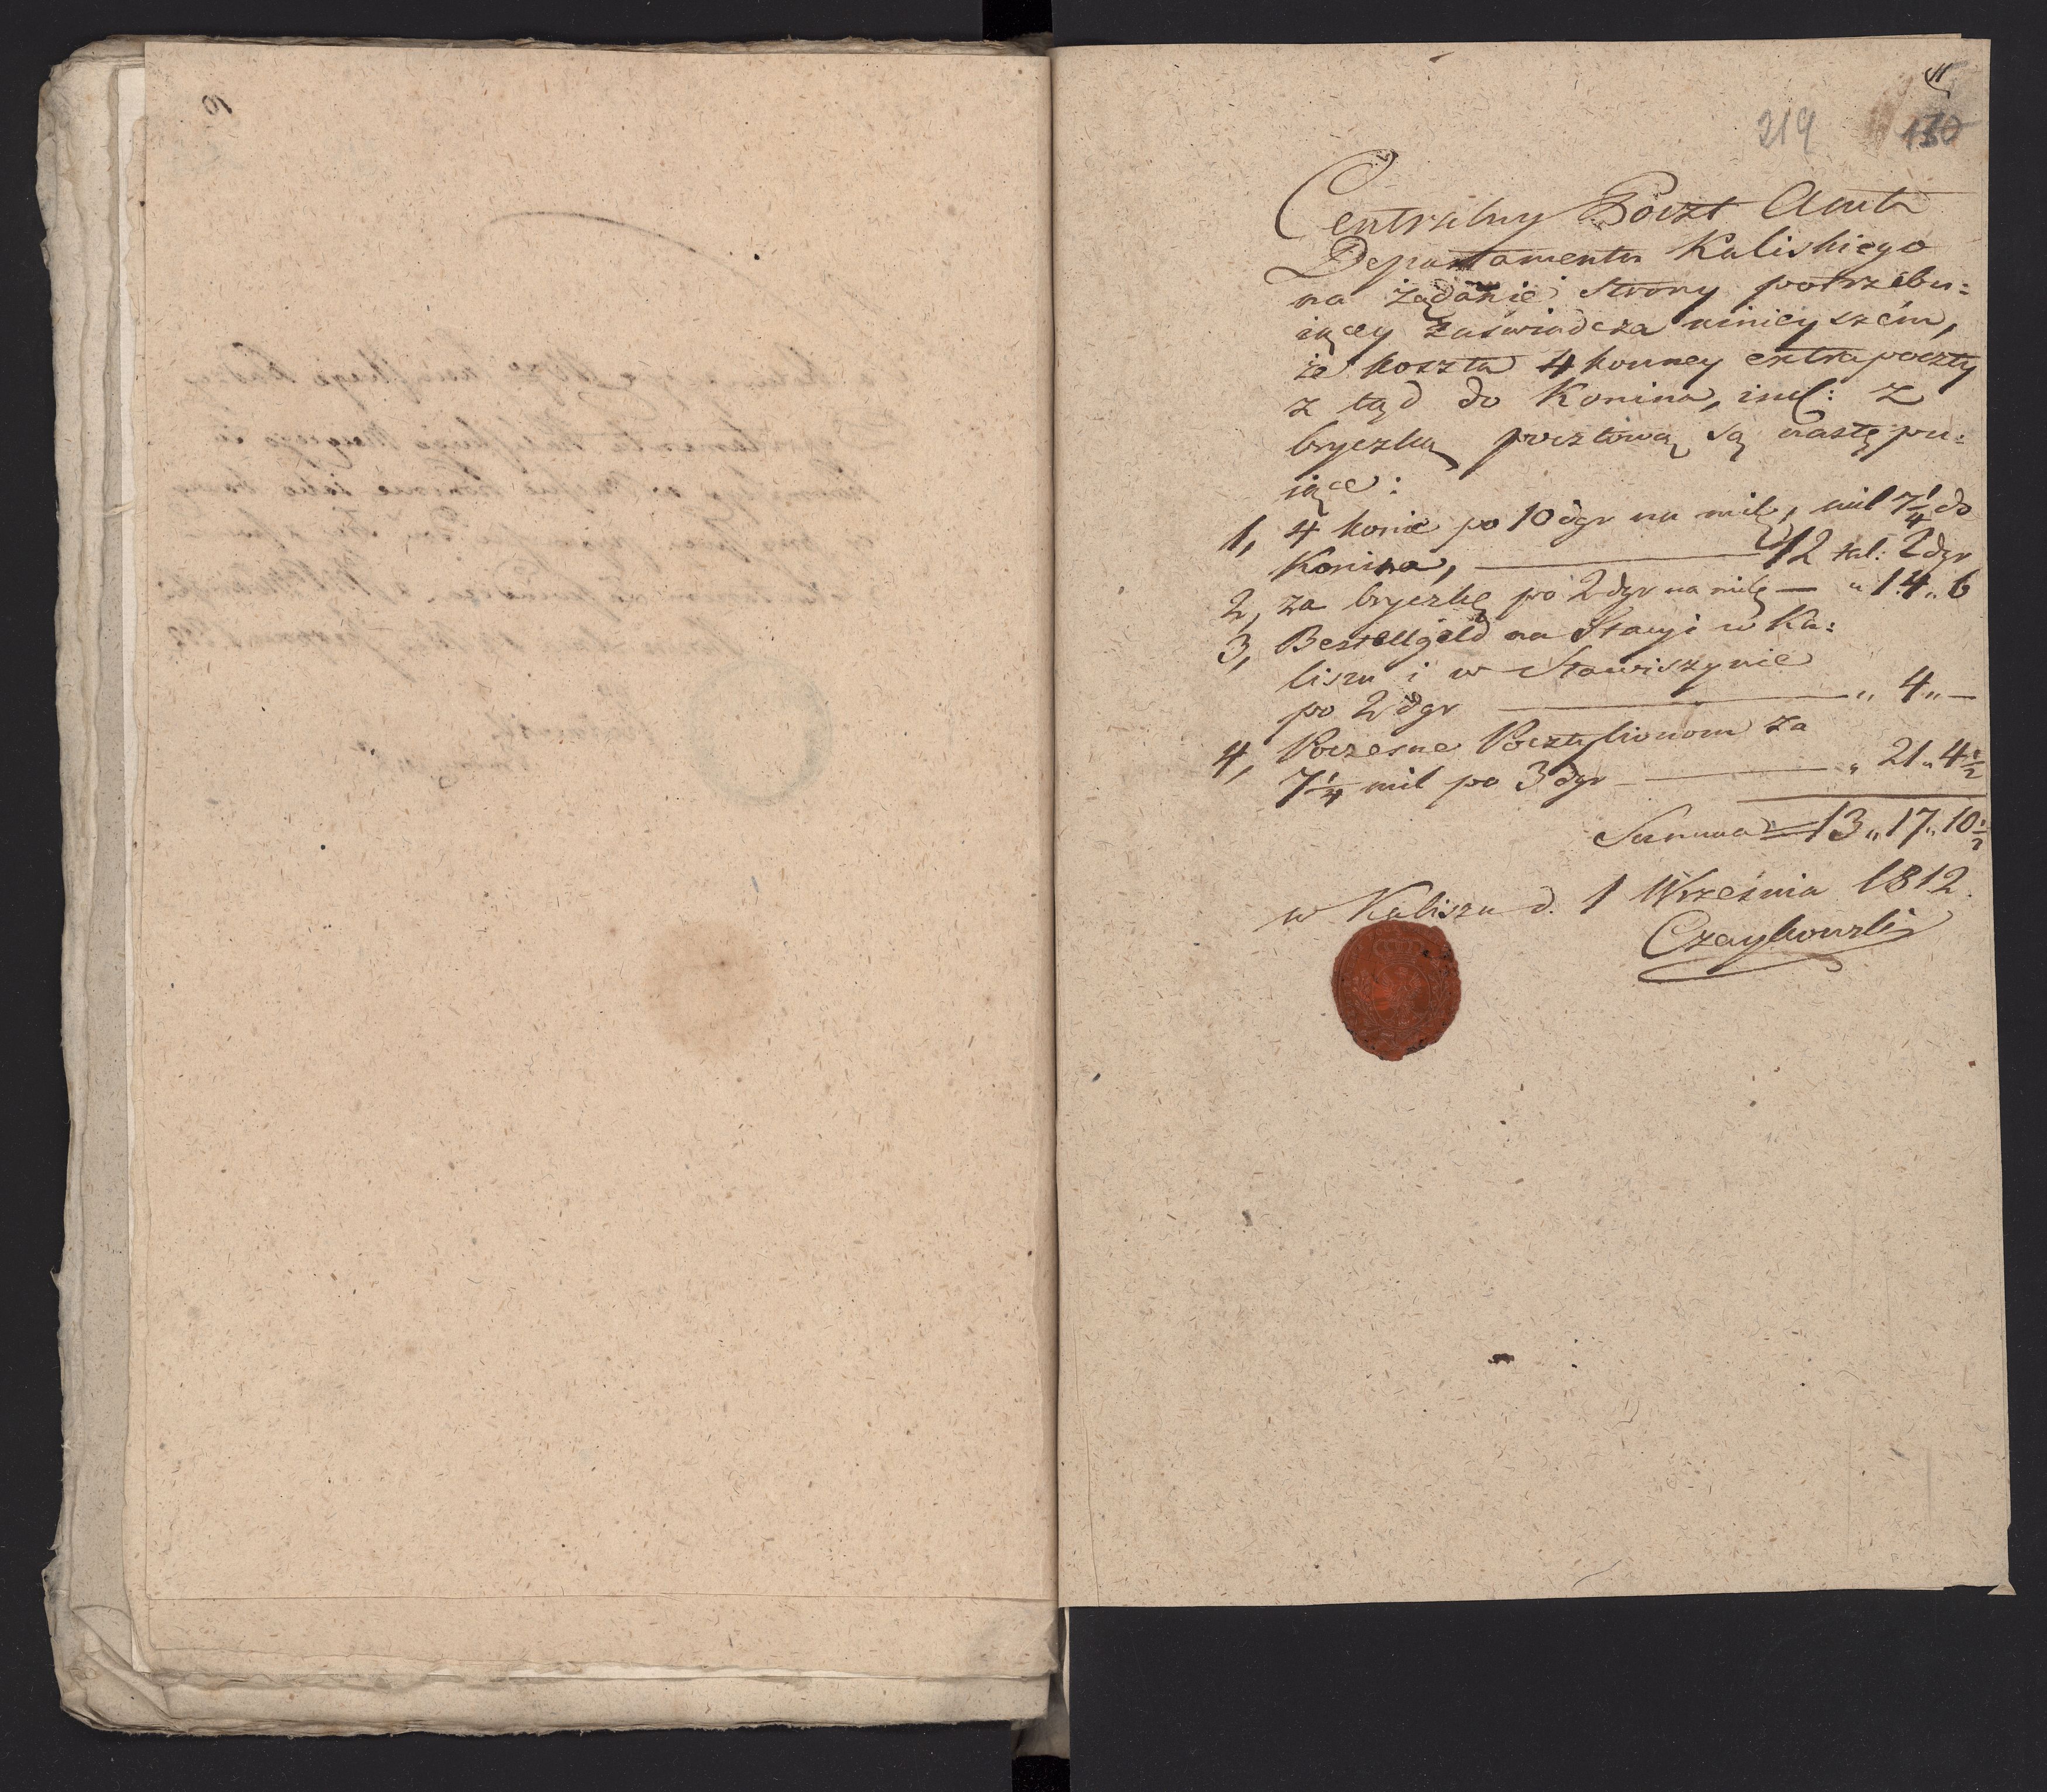 11
219 130
Centralny Poczt Amt
Departamentu Kaliskiego
na żądanie strony potrzebu=
iącey zaświadcza ninieyszém,
że koszta 4 konney extrapoczty
z tąd do Konina, incl: z
bryczką pocztową są następu=
iące:
1, 4 konie po 10 dgr na milę, mil 7¼ do
Konina, — 12 tal: 2 dgr
2, za bryczkę po 2 dgr na milę — " 14 " 6
3, Bestellgeld na Stacyi w Ka=
liszu i w Stawiszynie
po 2 dgr — " 4 " —
4, Poczesne Pocztylionom za
7¼ mil po 3 dgr — " 21 " 4½
Summa = 13 " 17 " 10½
w Kaliszu d. 1 Września 1812.
Czaykowski